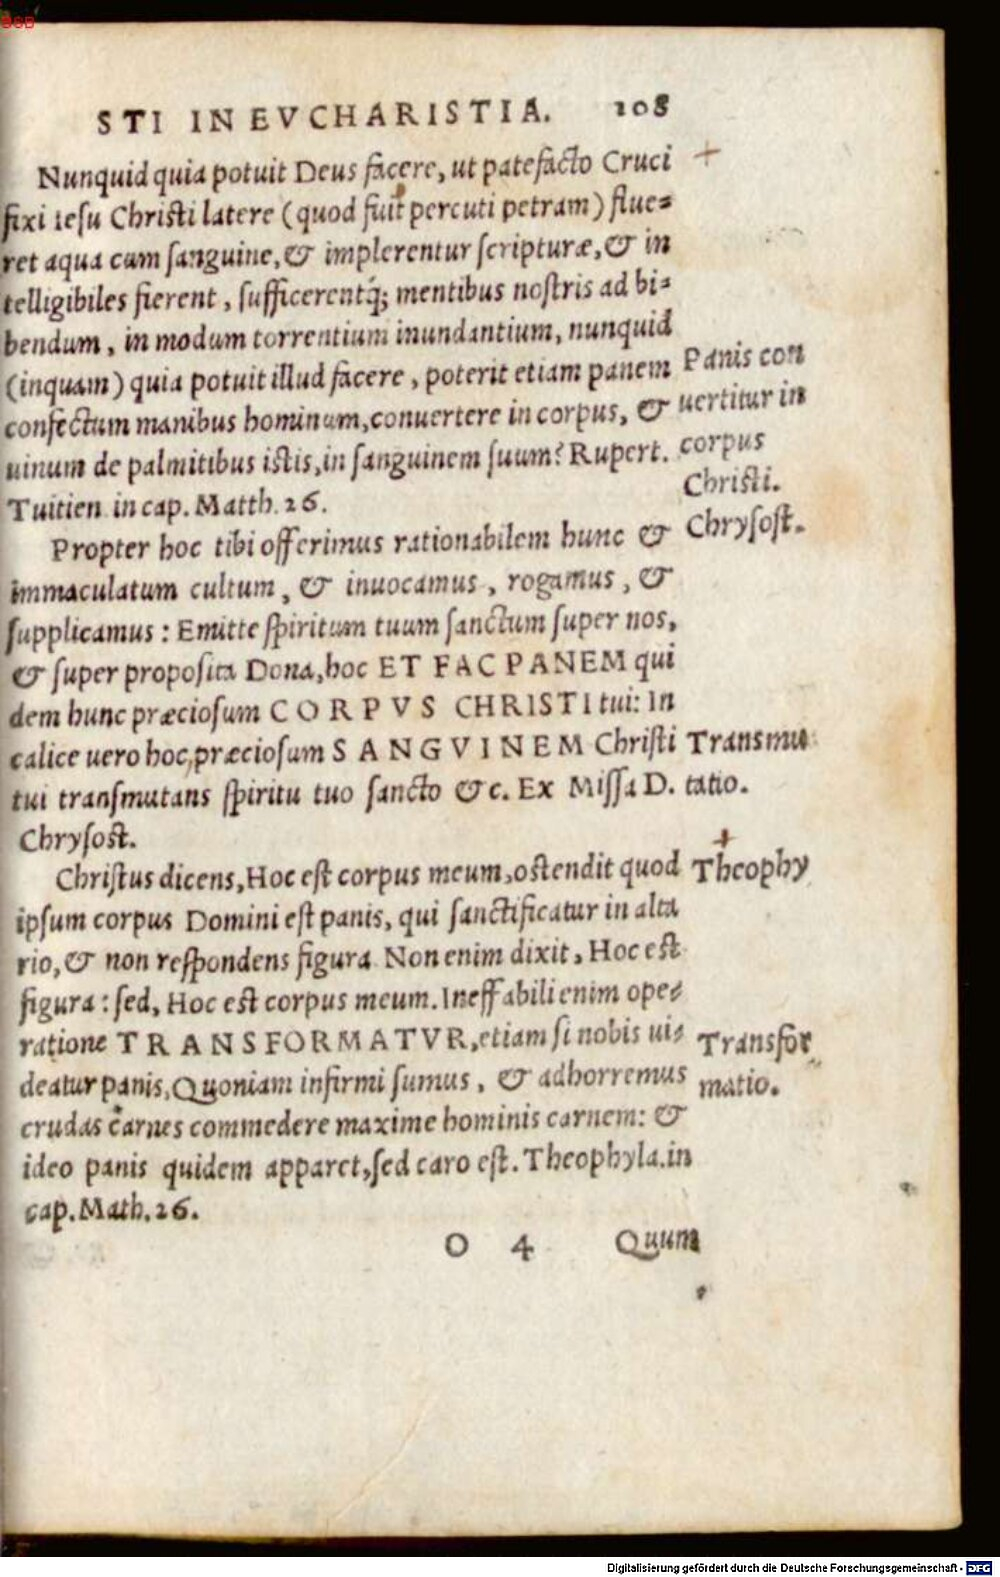 STI IN EVCHARISTIA. 108
Nunquid quia potuit Deus facere, ut patefacto Cruci
fixi iesu Christi latere (quod fuit percuti petram) flue-
ret aqua cum sanguine, & implerentur scripturæ, & in
telligibiles fierent, sufficerentq́; mentibus nostris ad bi-
bendum, in modum torrentium inundantium, nunquid
(inquam) quia potuit illud facere, poterit etiam panem
confectum manibus hominum, conuertere in corpus, &
uinum de palmitibus istis, in sanguinem suum? Rupert.
Tuitien in cap. Matth. 26.
Panis con
uertitur in
corpus
Christi.
Propter hoc tibi offerimus rationabilem hunc &
immaculatum cultum, & inuocamus, rogamus, &
supplicamus: Emitte spiritum tuum sanctum super nos,
& super proposita Dona, hoc ET FAC PANEM qui
dem hunc præciosum CORPVS CHRISTI tui: In
calice uero hoc, præciosum SANGVINEM Christi
tui transmutans spiritu tuo sancto &c. Ex Missa D.
Chrysost.
Chrysost.
Transmu
tatio.
Christus dicens, Hoc est corpus meum, ostendit quod
ipsum corpus Domini est panis, qui sanctificatur in alta
rio, & non respondens figura. Non enim dixit, Hoc est
figura: sed, Hoc est corpus meum. Ineffabili enim ope-
ratione TRANSFORMATVR, etiam si nobis ui-
deatur panis, Quoniam infirmi sumus, & adhorremus
crudas carnes commedere maxime hominis carnem: &
ideo panis quidem apparet, sed caro est. Theophyla. in
cap. Math. 26.
Theophy
Transfor
matio.
O 4 Quum
Digitalisierung gefördert durch die Deutsche Forschungsgemeinschaft - DFG